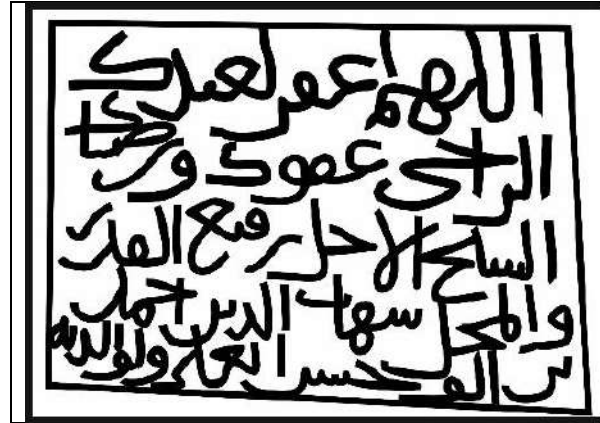 اللهم اغفر لعبدك
الراجي عفوك ورضاك
الشيخ الاجل رفيع القدر
والمحل شهاب الدين احمد
بن حسين العلي ولوالديه